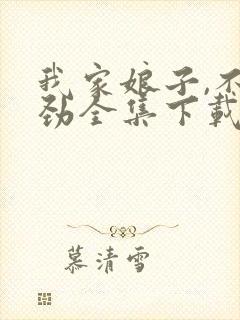 我家娘子,不
劲全集下载
慕清雪